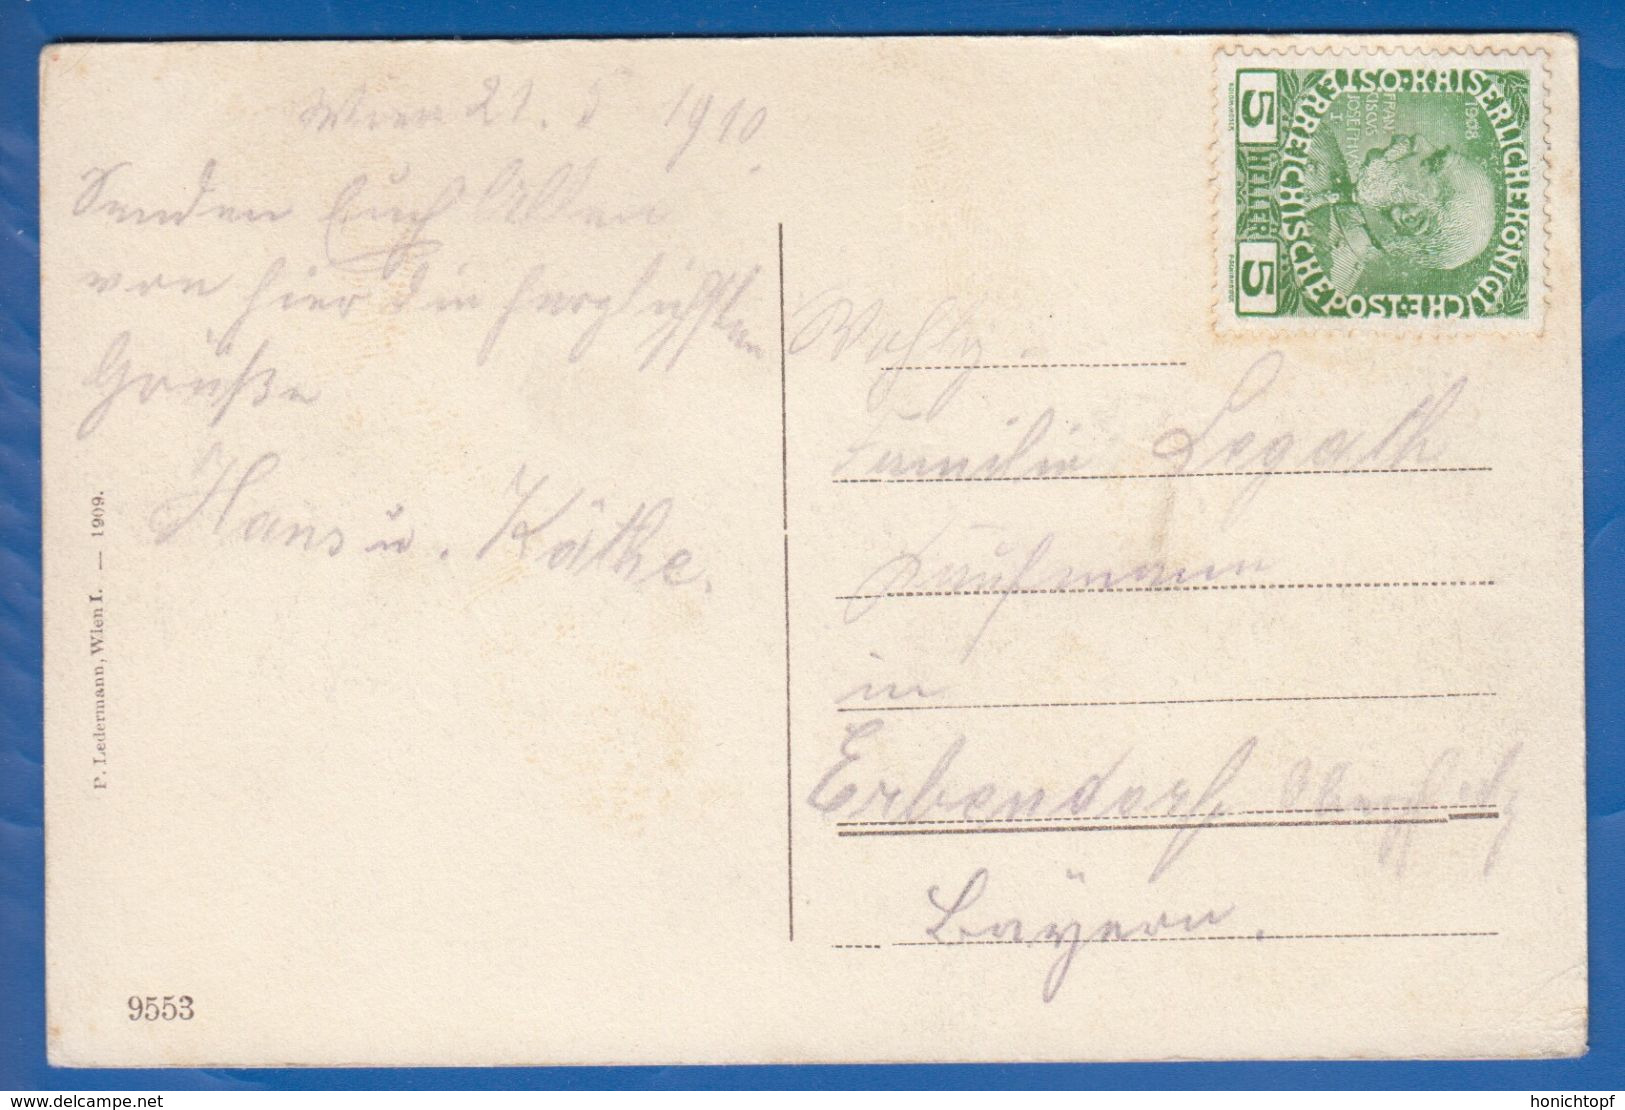 Wien 21. 5 1910.
Senden Euch Allen
von hier die herzlichsten
Grüße
Hans u. Käthe.
P. Ledermann, Wien I. — 1909.
9553
KAISERLICHE KÖNIGLICHE
ÖSTERREICHISCHE POST
1908
FRANCISCUS JOSEPHUS I
5 HELLER 5
Wohlg.
Familie Legath
Kaufmann
in
Erbendorf Oberpfalz
Bayern.
www.delcampe.net
honichtopf